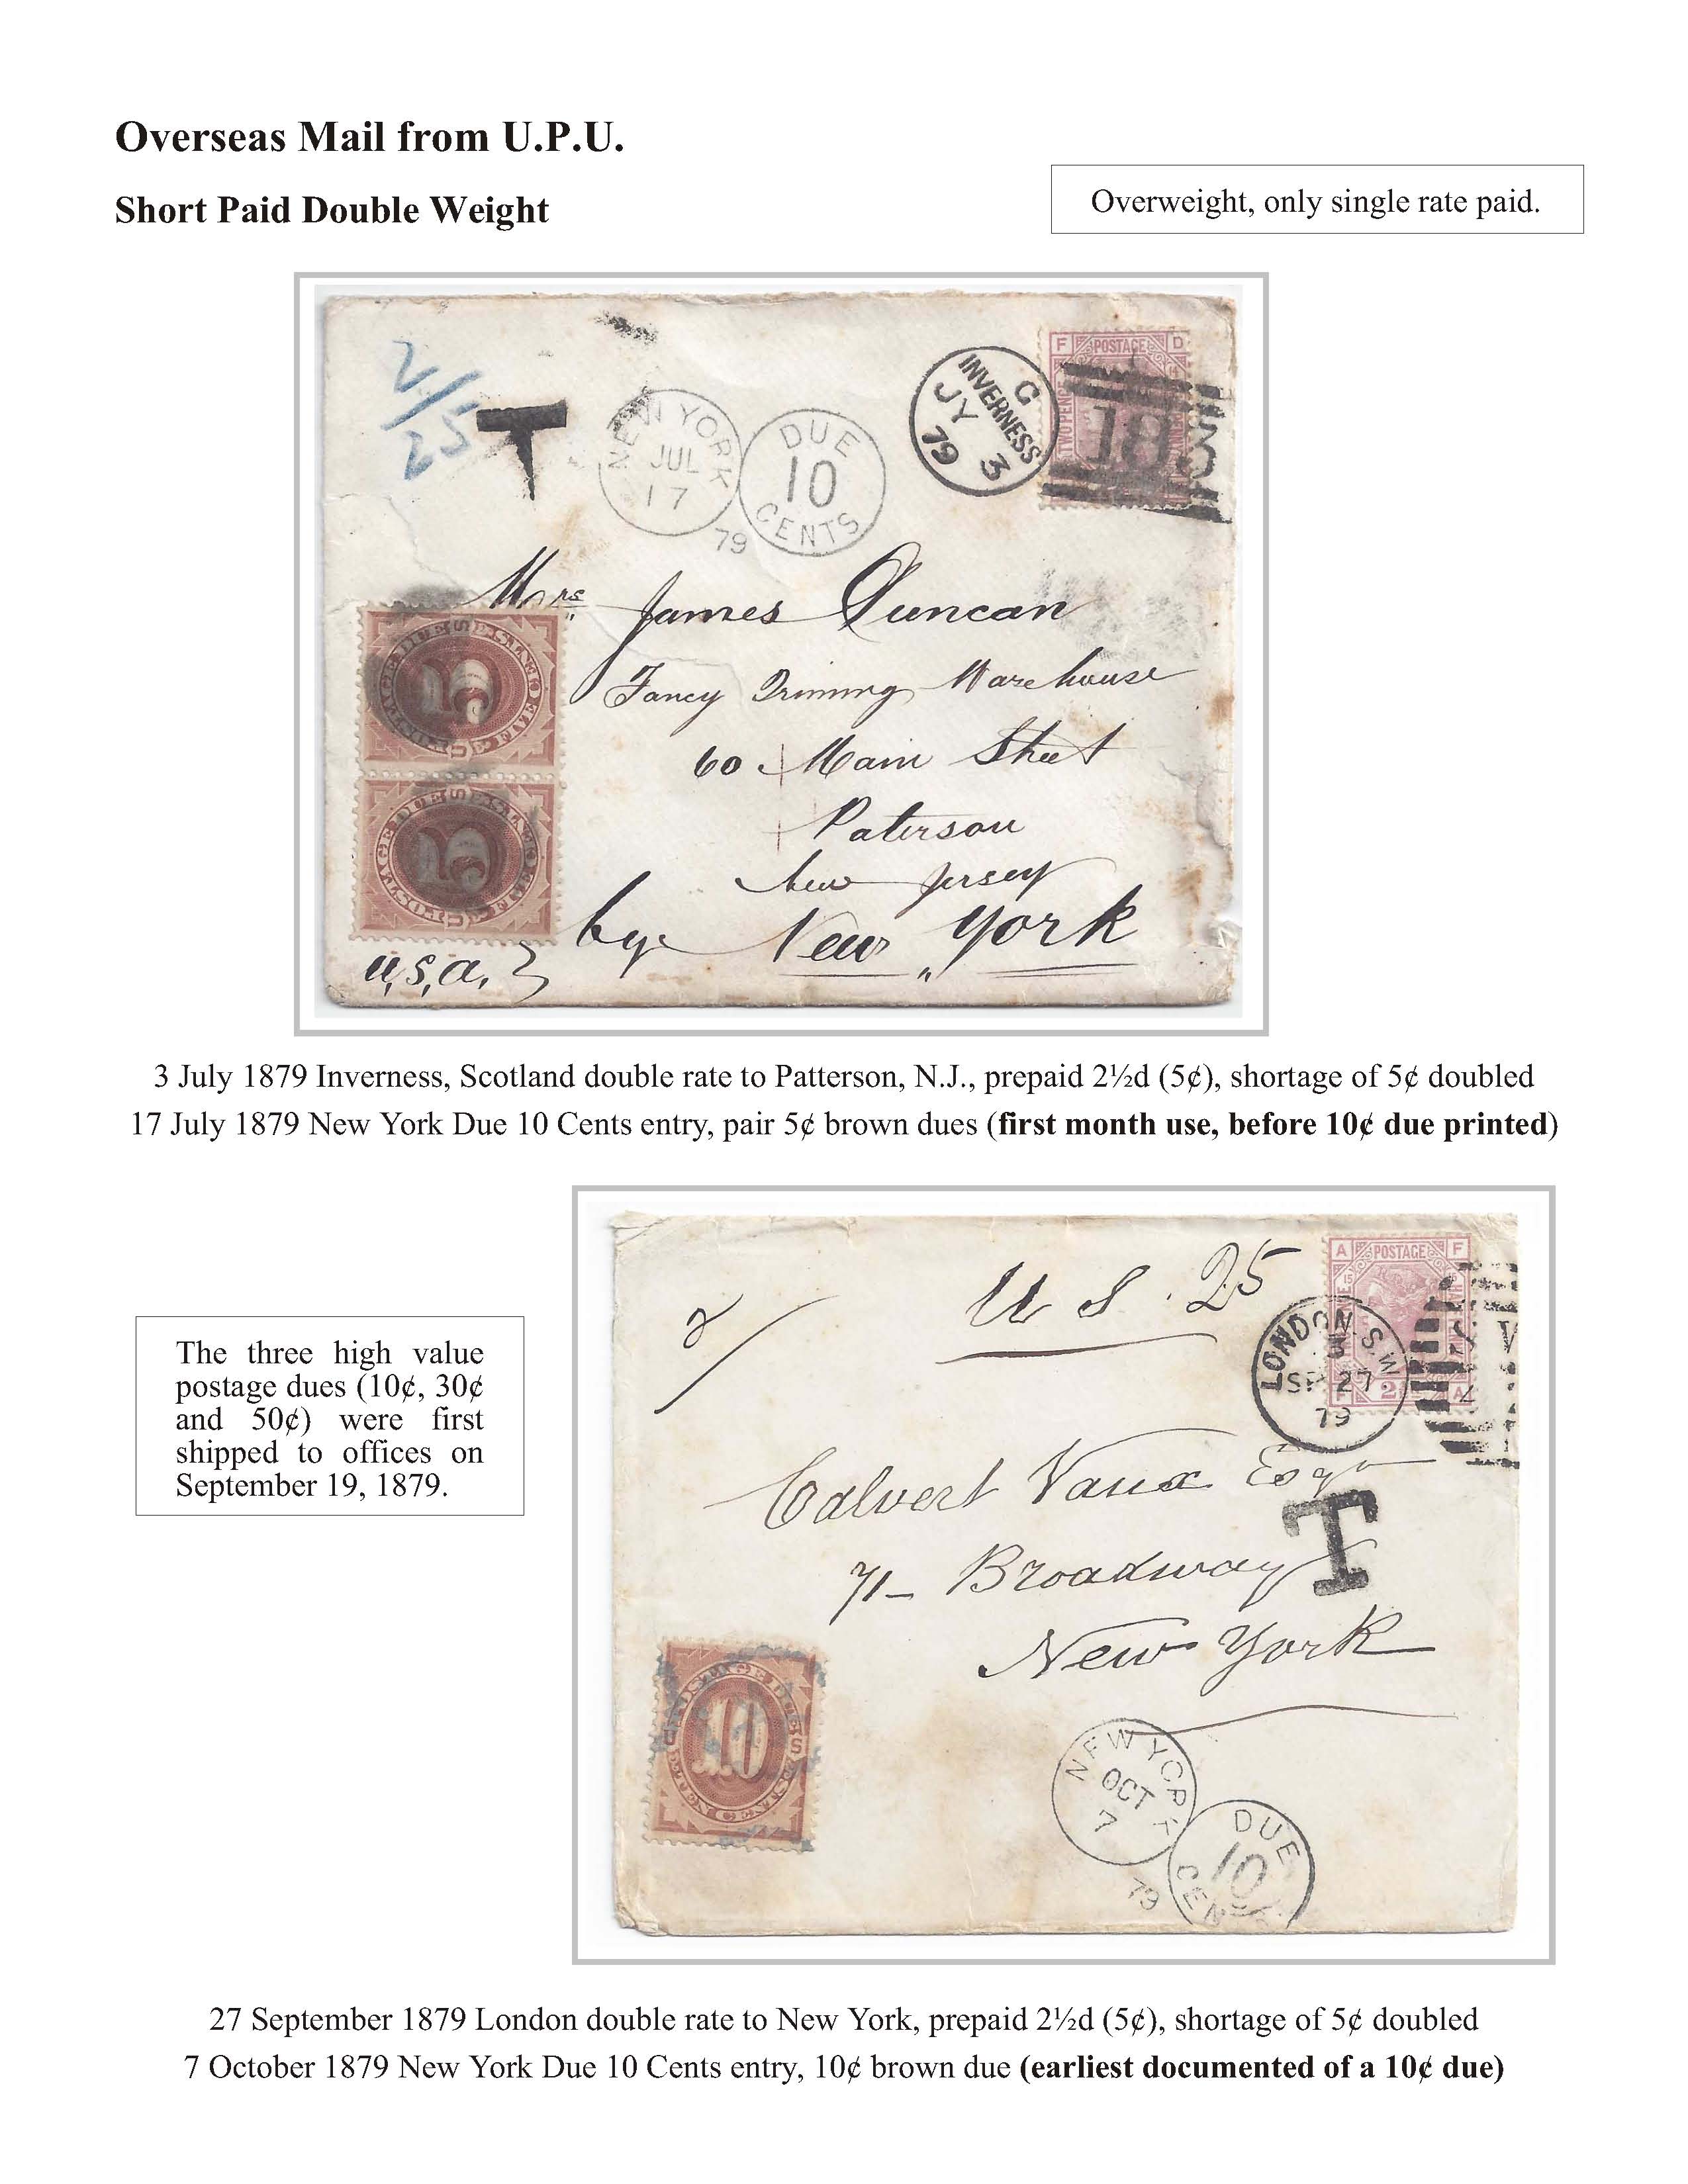 Overseas Mail from U.P.U.
Short Paid Double Weight
Overweight, only single rate paid.
2/
25
T
NEW YORK
JUL
17
79
DUE
10
CENTS
C
INVERNESS
JY 3
79
F POSTAGE D
18
Mrs James Duncan
Fancy Trimming Warehouse
60 Main Street
Paterson
New Jersey
bye New York
U,S,A,
3 July 1879 Inverness, Scotland double rate to Patterson, N.J., prepaid 2½d (5¢), shortage of 5¢ doubled
17 July 1879 New York Due 10 Cents entry, pair 5¢ brown dues (first month use, before 10¢ due printed)
The three high value
postage dues (10¢, 30¢
and 50¢) were first
shipped to offices on
September 19, 1879.
2/
U S . 25
A POSTAGE F
LONDON. S.W
SP 27
79
Calvert Vaux Esqr
T
71 Broadway
New York
10
NEW YORK
OCT
7
79
DUE
10
CEN
27 September 1879 London double rate to New York, prepaid 2½d (5¢), shortage of 5¢ doubled
7 October 1879 New York Due 10 Cents entry, 10¢ brown due (earliest documented of a 10¢ due)